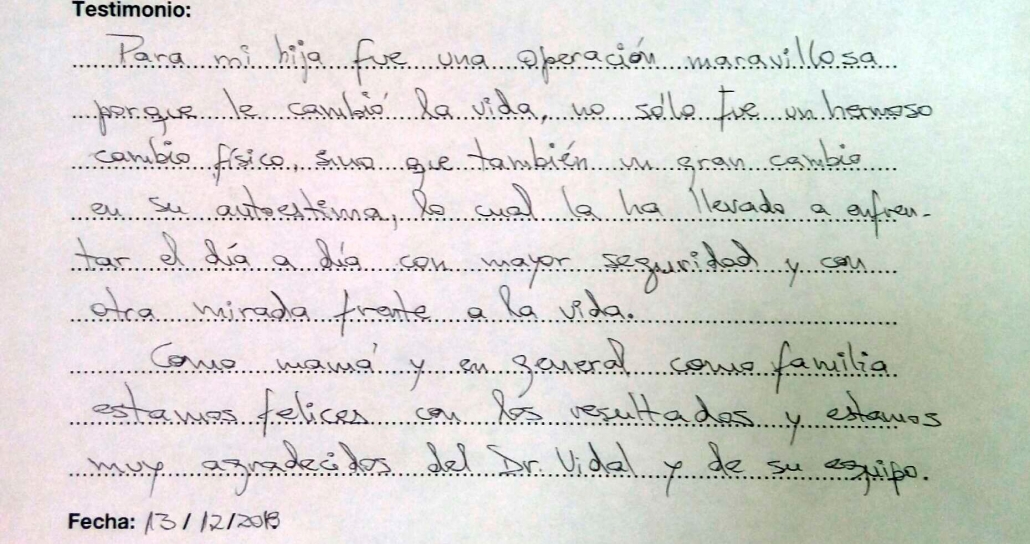 Testimonio:
Para mi hija fue una operación maravillosa
porque le cambió la vida, no sólo fue un hermoso
cambio físico, sino que también un gran cambio
en su autoestima, lo cual la ha llevado a enfren-
tar el día a día con mayor seguridad y con
otra mirada frente a la vida.
Como mamá y en general como familia
estamos felices con los resultados y estamos
muy agradecidos del Dr. Vidal y de su equipo.
Fecha: 13/12/2013